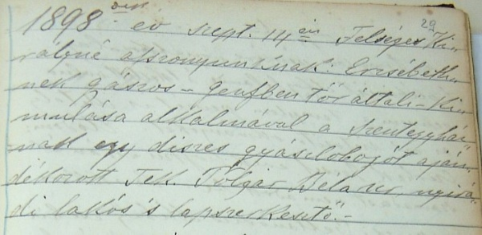 29
1898 év szept. 14 én Felséges Ki-
rályné asszonyunknak Erzsébeth-
nek gászos - genfben tör általi - Ki-
mulása alkalmával a Szentegyház-
nak egy díszes gyászlobogót aján-
dékozott Tek. Polgár nyirá-
di lakós s lapszerkesztő.-